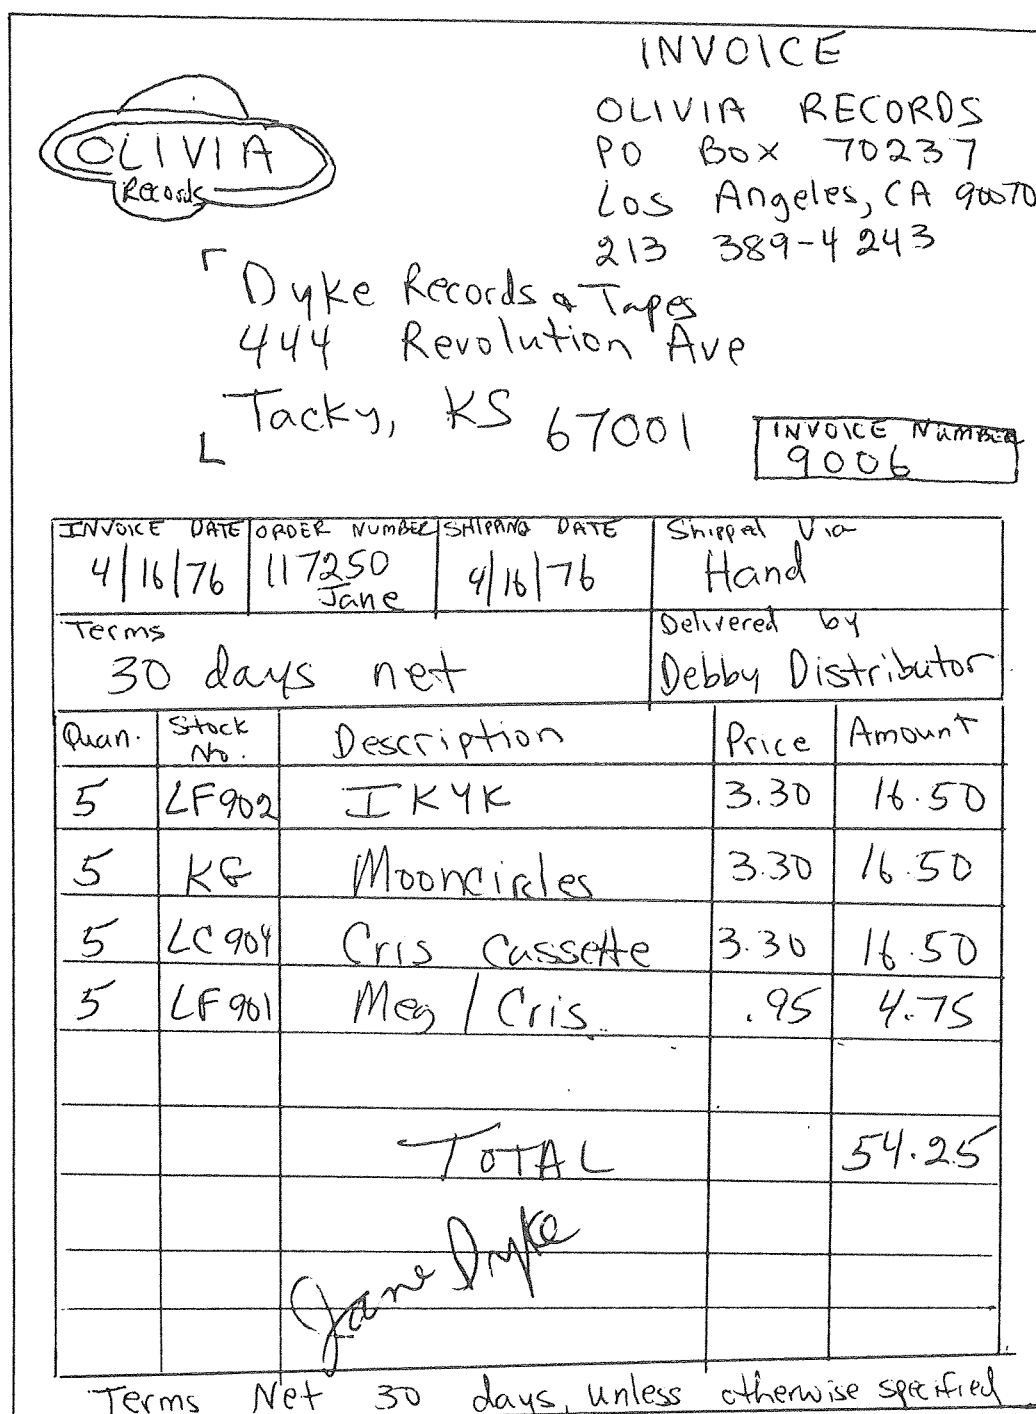 INVOICE
OLIVIA
Records
OLIVIA RECORDS
PO Box 70237
Los Angeles, CA 90070
213 389-4243
Dyke Records & Tapes
444 Revolution Ave
Tacky, KS 67001
INVOICE NUMBER
9006
INVOICE DATE ORDER NUMBER SHIPPING DATE Shipped Via
4/16/76 117250 Jane 4/16/76 Hand
Terms Delivered by
30 days net Debby Distributor
Quan. Stock No. Description Price Amount
5 LF902 IKYK 3.30 16.50
5 KG Mooncircles 3.30 16.50
5 LC904 Cris Cassette 3.30 16.50
5 LF901 Meg / Cris .95 4.75
TOTAL 54.25
Jane Dyke
Terms Net 30 days, unless otherwise specified